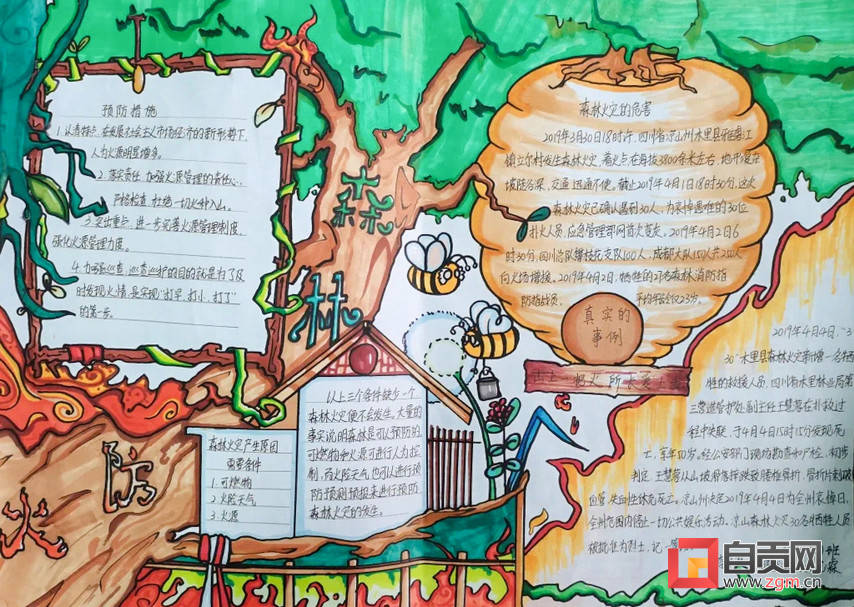 预防措施
1.认清特点,在发展社会主义市场经济的新形势下,
人为火源明显增多。
2.落实责任,加强火源管理的责任心,
严格检查,杜绝一切火种入山。
3.突出重点,进一步完善火源管理制度,
强化火源管理力度。
4.加强巡查,巡查巡护的目的就是为了及
时发现火情,是实现"打早、打小、打了"
的第一步。
森
林
防
火
森林火灾产生原因
重要条件
1.可燃物
2.火险天气
3.火源
以上三个条件缺少一个
森林火灾便不会发生。大量的
事实说明森林是可以预防的
可燃物和火源可进行人为控
制,而火险天气也可以进行预
防预测预报来进行预防
森林火灾的发生。
森林火灾的危害
2019年3月30日18时许,四川省凉山州木里县
镇立尔村发生森林火灾,着火点在海拔3800余米左右,地
坡陡谷深,交通、通讯不便。截止2019年4月1日18时30分,这次
森林火灾已确认遇到30人,为哀悼遇难的30位
扑火人员,应急管理部网首次变灰。2019年4月2日6
时30分,四川总队攀枝花支队100人,成都大队110人共210人
向火场增援。2019年4月2日,牺牲的27名森林消防指
防指战员, 平均年龄仅23岁。
真实的
事例
2019年4月4日,"3
30"木里县森林火灾新增一名牺
牲的救援人员,四川省木里林业局第
三营造管护处副主任王慧蓉在扑救过
程中失联,于4月4日15时15分发现死
亡,享年 岁。经公安部门现场勘查和尸检,初步
判定,王慧蓉从山坡滑摔跌致腰椎骨折,骨折片刺破
血管,失血性休克死亡。凉山州决定2019年4月4日为全州哀悼日,
全州范围内停止一切公共娱乐活动。凉山森林火灾30名牺牲人员
被批准为烈士,记一等
班
自贡网
www.zgm.cn